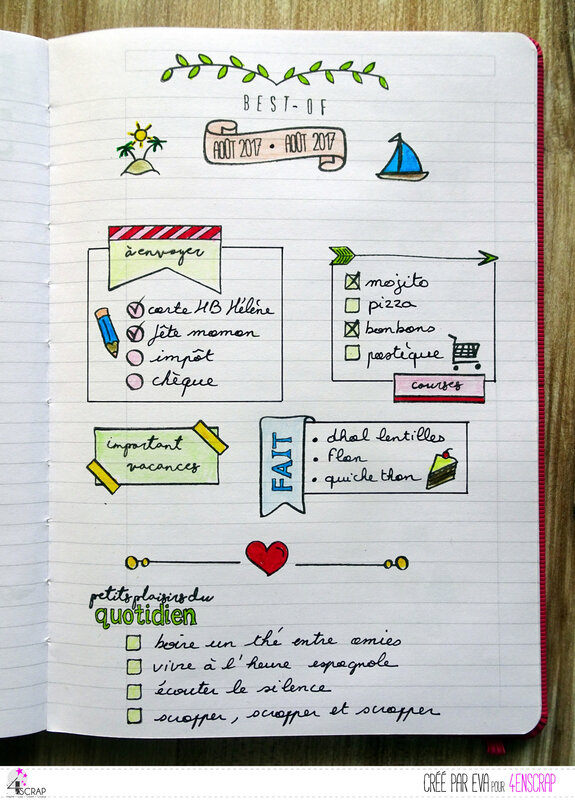 BEST-OF
AOÛT 2017 • AOÛT 2017
à envoyer
carte HB Hélène
fête maman
impôt
chèque
mojito
pizza
bonbons
pastèque
courses
important
vacances
FAIT
• dhal lentilles
• flan
• quiche thon
petits plaisirs du
quotidien
boire un thé entre amies
vivre à l'heure espagnole
écouter le silence
scrapper, scrapper et scrapper
4enSCRAP
CRÉÉ PAR EVA POUR 4ENSCRAP